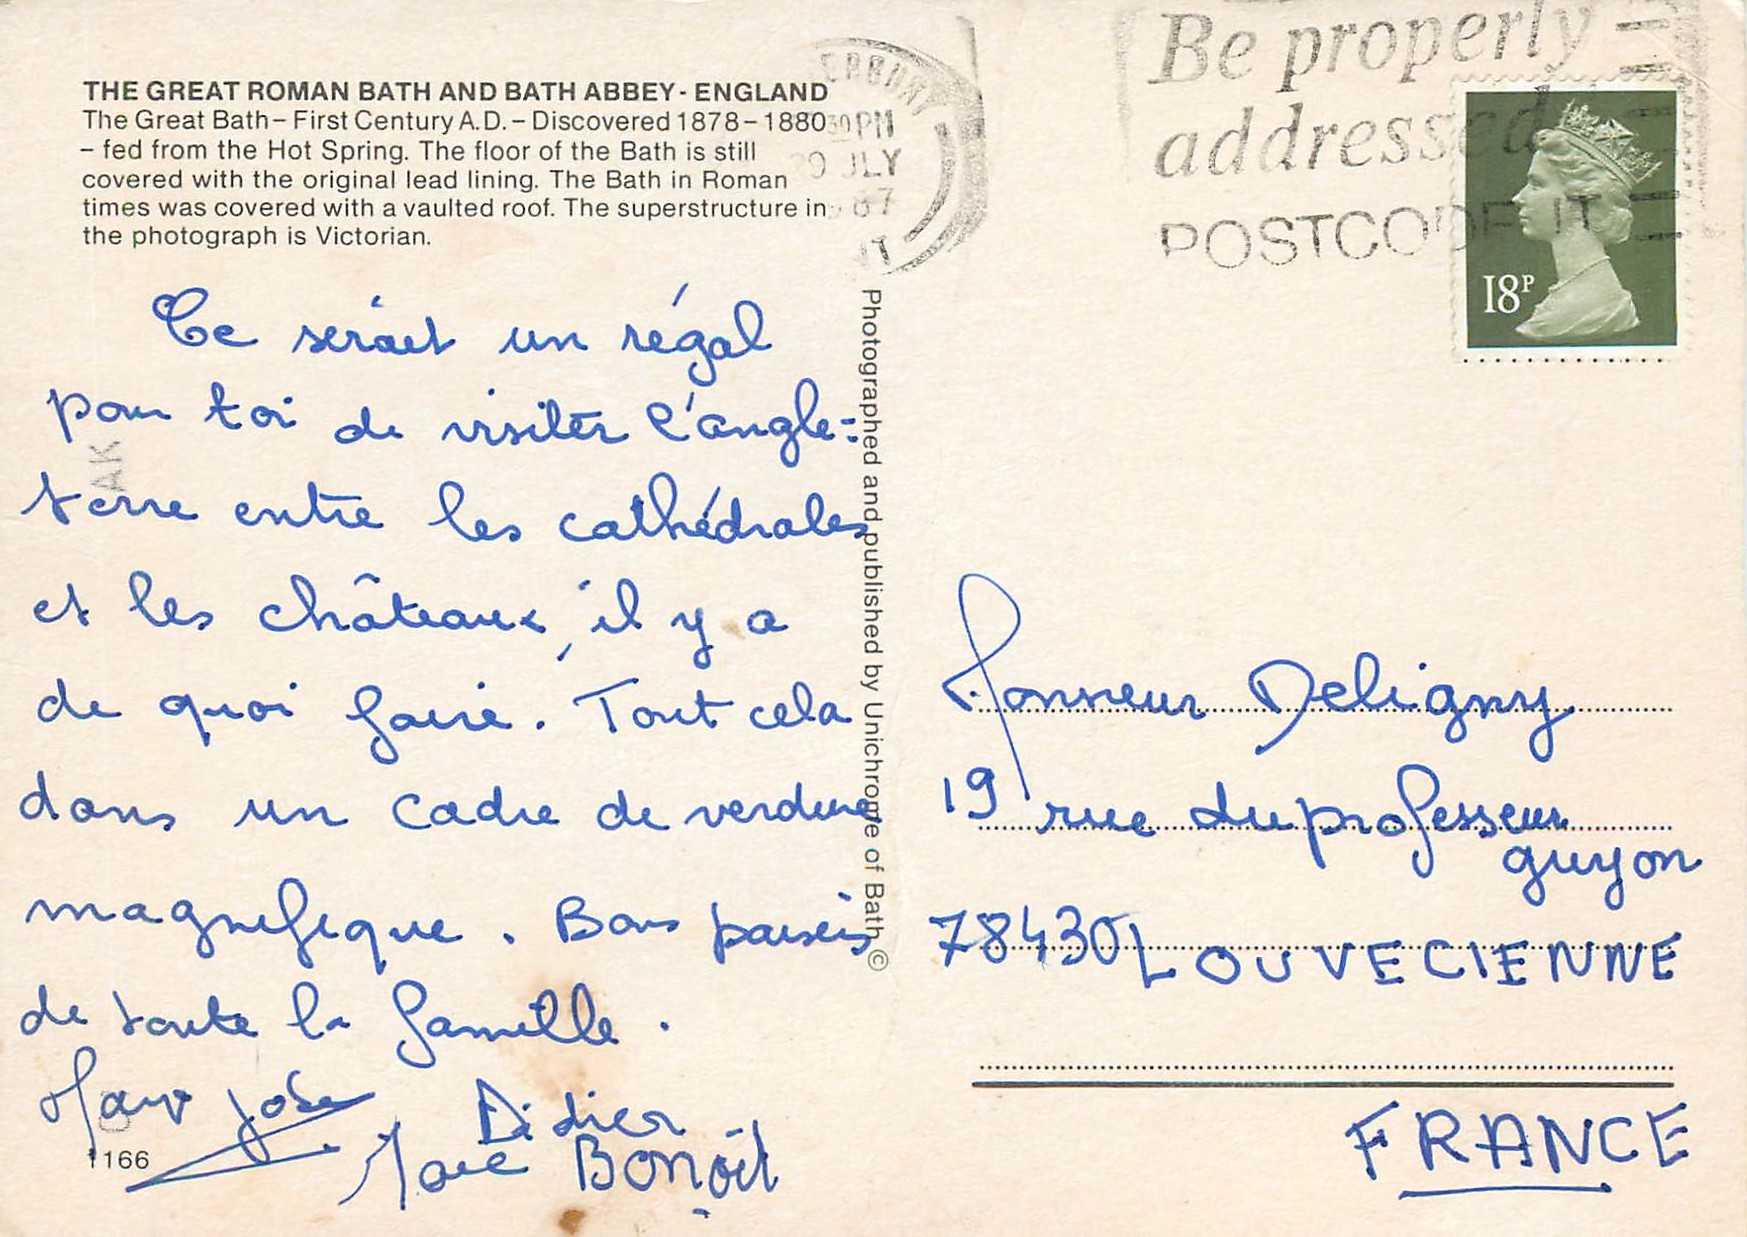 THE GREAT ROMAN BATH AND BATH ABBEY - ENGLAND
The Great Bath – First Century A.D. – Discovered 1878 – 1880
– fed from the Hot Spring. The floor of the Bath is still
covered with the original lead lining. The Bath in Roman
times was covered with a vaulted roof. The superstructure in
the photograph is Victorian.
Ce serait un régal
pour toi de visiter l'angle=
terre entre les cathédrales
et les châteaux, il y a
de quoi faire. Tout cela
dans un cadre de verdure
magnifique. Bons baisers
de toute la famille.
Marie José
Didier
Marc Benoît
1166
Photographed and published by Unichrome of Bath ©
30 PM
JLY
87
Be properly
addressed
POSTCODE IT
18P
Monsieur Deligny
19 rue du professeur
guyon
78430 LOUVECIENNE
FRANCE
AK